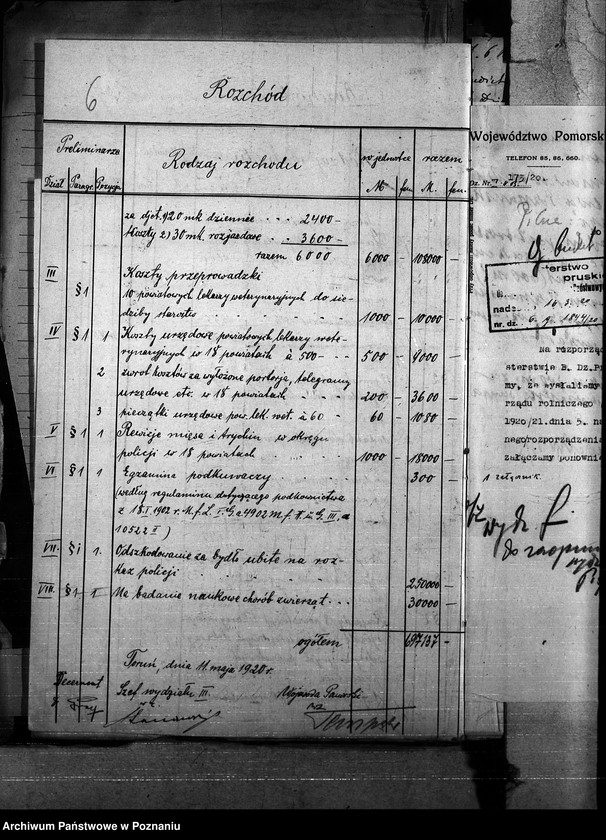 6
Rozchód
Preliminarza
Dział Paragr. Pozycja
Rodzaj rozchodu
w jednostce
M fen
razem
M. fen.
za djet. 920 mk dziennie . . . 2400 -
Koszty 2) 30 mk. rozjazdowe . . 3600 -
razem 6000 6000 - 108000 -
III Koszty przeprowadzki
§ 1 10 powiatowych lekarzy weterynaryjnych do sie-
dziby starostw 1000 - 10000 -
IV § 1 1 Koszty urzędowe powiatowych lekarzy wete-
rynaryjnych w 18 powiatach à 500 - 500 - 9000 -
2 zwrot kosztów za wyłożone portorja, telegramy
urzędowe etc. w 18 powiatach 200 - 3600 -
3 pieczątki urzędowe pow. lek. wet. à 60 - 60 - 1080 -
V § 1 1 Rewizje mięsa i w okręgu
policji w 18 powiatach 1000 - 18000 -
VI § 1 1 Egzamina podkuwaczy . . 300 -
(według regulaminu dotyczącego podkownictwa
z 18.I.1902 r. M.f.L. I. G.a 4902 M.f.H. u. G. III. a
10522 II)
VII. § 1 1. Odszkodowanie za bydło ubite na roz-
kaz policji 250000 -
VIII. § 1 1 Na badanie naukowe chorób zwierząt . . . 30000 -
ogółem 697137 -
Toruń, dnia 11. maja 1920 r.
Decernent
Szef wydziału III.
Wojewoda Pomorski
Województwo Pomorsk
TELEFON 85, 86, 660.
Dz. Nr. 173/20.
Pilne
terstwo
prusk
nade
nr. dz.
Na rozporząd
sterstwa B. Dz. Pr
my, że wysłaliśmy
rządu rolniczego
1920/21. dnia 5. ma
nego rozporządzenia
załączamy ponownie
1 załącznik
Archiwum Państwowe w Poznaniu